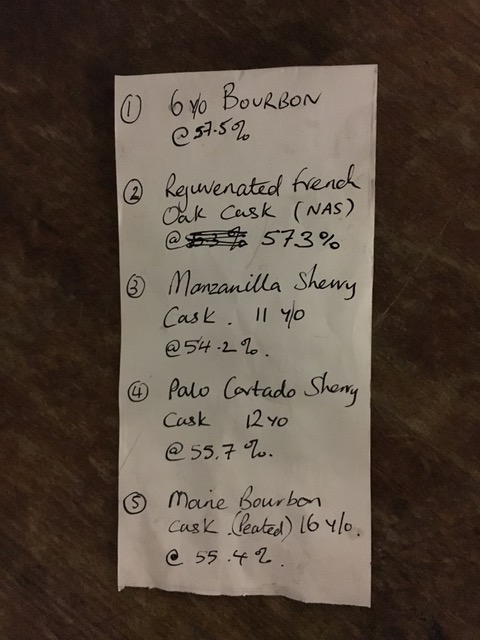 ① 6 y/o BOURBON
@ 57.5%
② Rejuvenated French
Oak Cask (NAS)
@ 57.3%
③ Manzanilla Sherry
Cask. 11 y/o
@ 54.2%.
④ Palo Cortado Sherry
Cask 12 yo
@ 55.7%.
⑤ Bourbon
Cask (Peated) 16 y/o.
@ 55.4%.